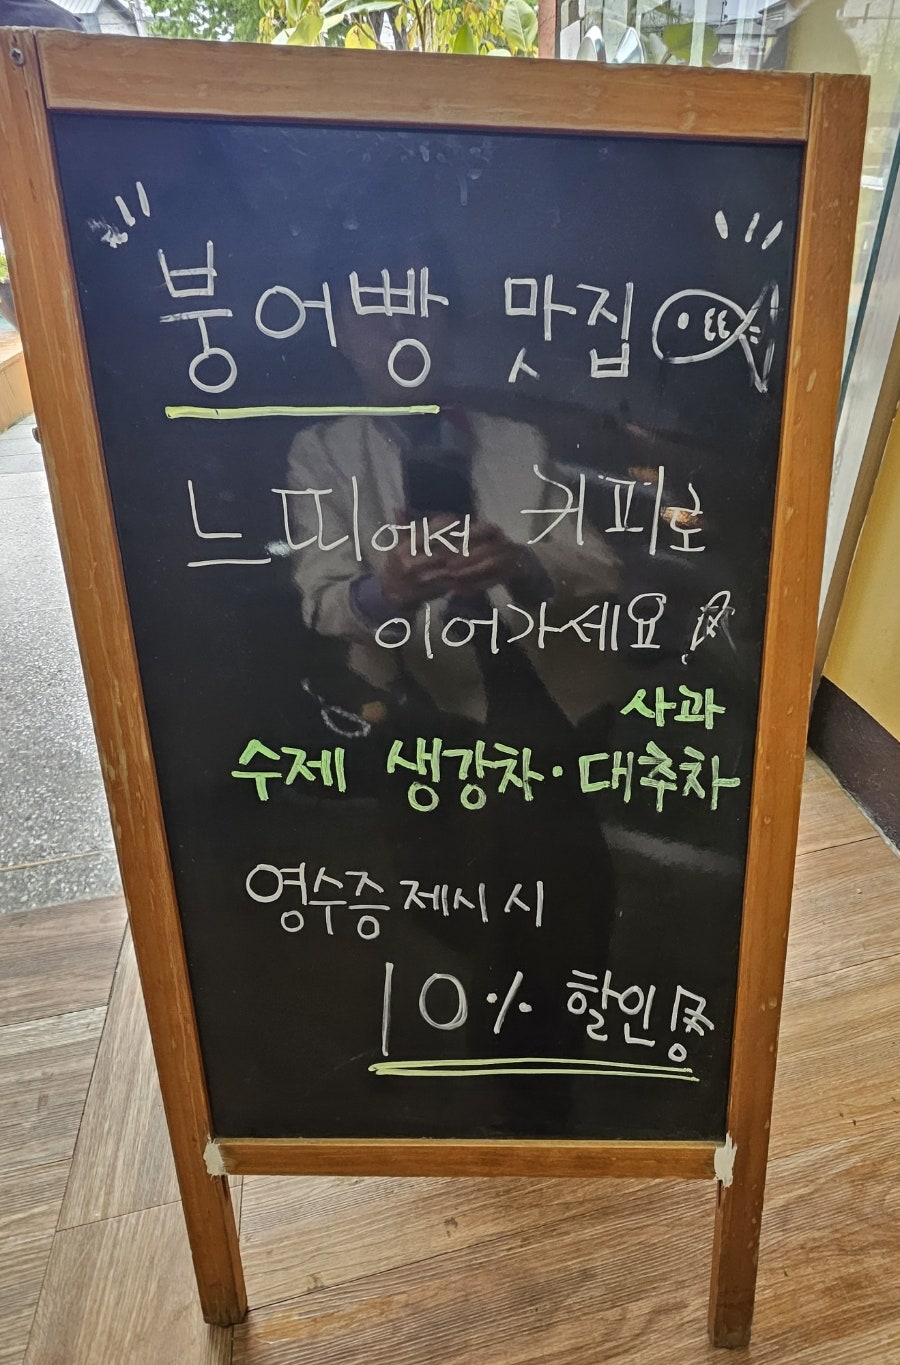 붕어빵 맛집
느띠에서 커피로
이어가세요
사과
수제 생강차·대추차
영수증 제시 시
10% 할인